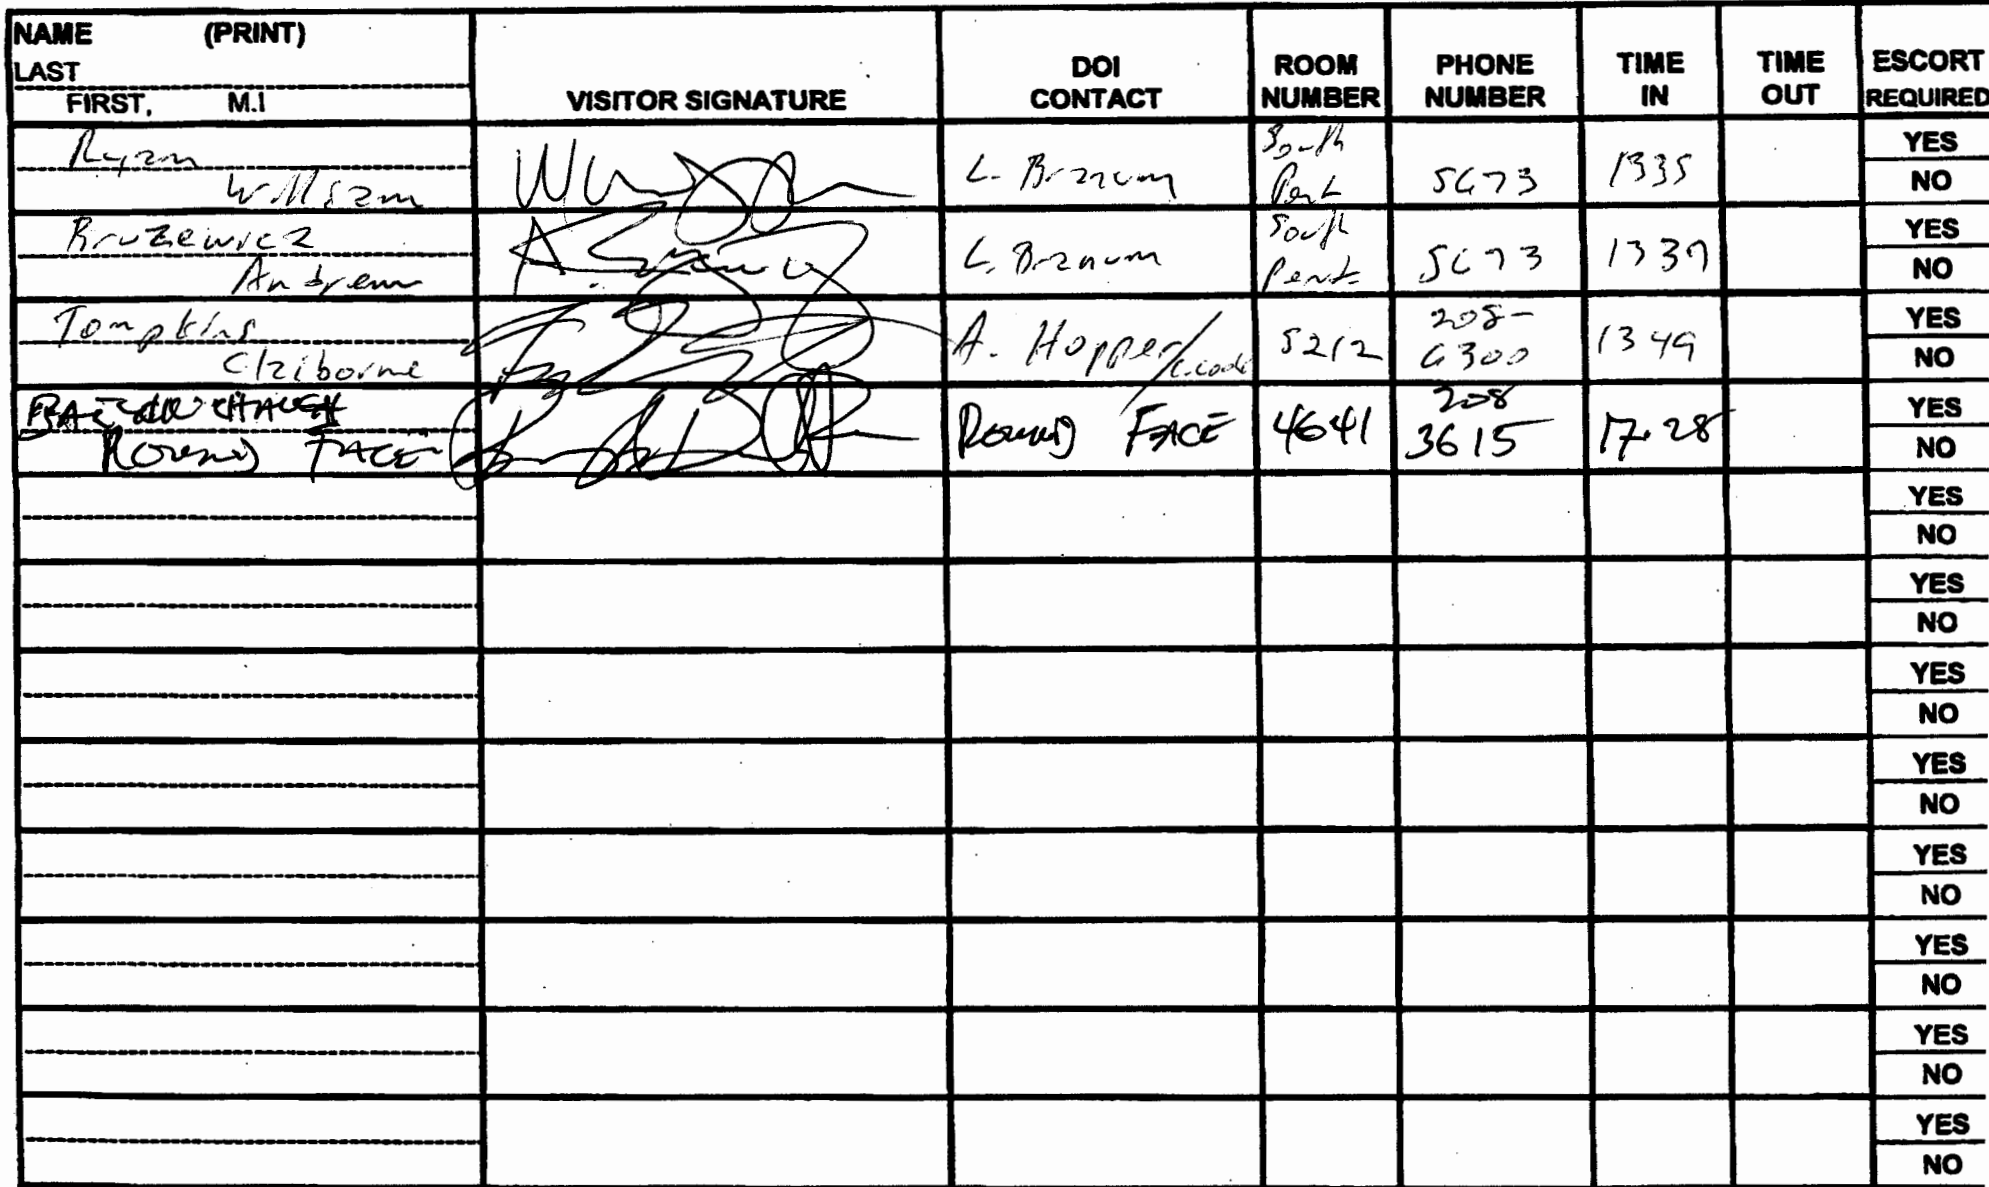 NAME (PRINT)
LAST
FIRST, M.I
VISITOR SIGNATURE
DOI CONTACT
ROOM NUMBER
PHONE NUMBER
TIME IN
TIME OUT
ESCORT REQUIRED
Ryan
William
L. Branum
South
Pent
5673
1335
YES
NO
Bruzewicz
Andrew
L. Branum
South
Pent
5673
1339
YES
NO
Tompkins
Claiborne
A. Hopper/
5212
208-
6300
1349
YES
NO
FACE
FACE
4641
208
3615
17:28
YES
NO
YES
NO
YES
NO
YES
NO
YES
NO
YES
NO
YES
NO
YES
NO
YES
NO